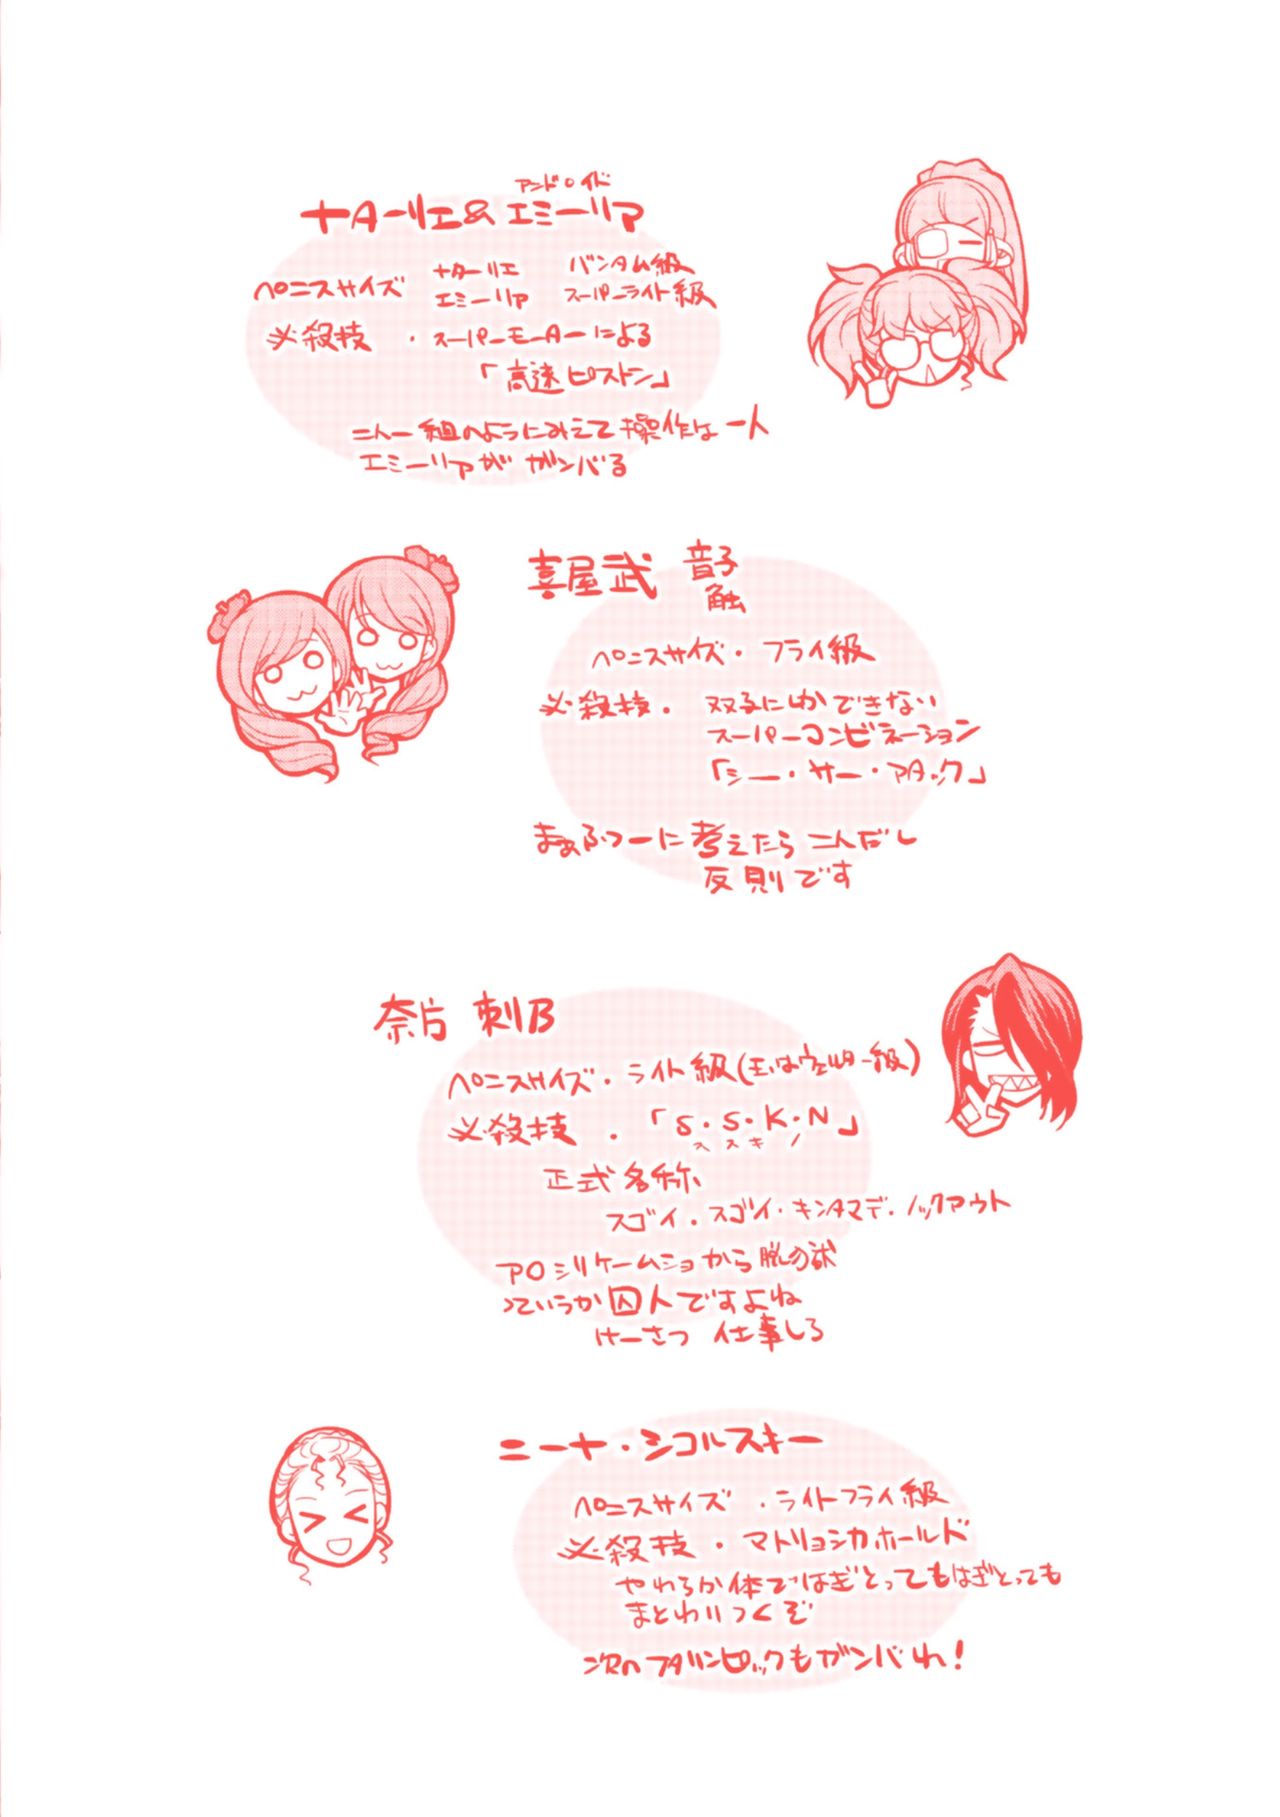 アンドロイド
ナターリエ&エミーリア
ペニスサイズ ナターリエ バンタム級
エミーリア スーパーライト級
必殺技 ・スーパーモーターによる
「高速ピストン」
二人一組のようにみえて操作は一人
エミーリアがガンバる
喜屋武 音子
触
ペニスサイズ・フライ級
必殺技・双子にしかできない
スーパーコンビネーション
「シー・サー・アタック」
まぁふつーに考えたら二人だし
反則です
奈片 刺B
ペニスサイズ・ライト級(玉はウェルター級)
必殺技・「S・S・K・N」
ススキノ
正式名称
スゴイ・スゴイ・キンタマデ・ノックアウト
アロシリケームショから脱の獄
っていうか囚人ですよね
けーさつ 仕事しろ
ニーナ・シコルスキー
ペニスサイズ ・ライトフライ級
必殺技・マトリョシカホールド
やわらか体ではぎとってもはぎとっても
まとわりつくぞ
次のフタリンピックもガンバれ!